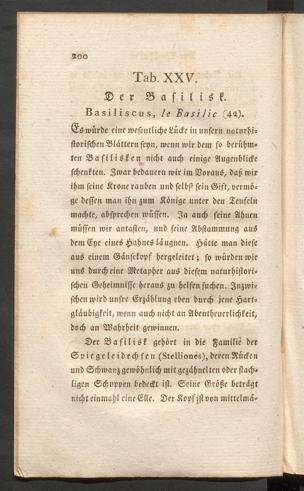 200
Tab. XXV.
Der Basilisk.
Basiliscus, le Basilic (42).
Es würde eine wesentliche Lücke in unsern naturhi-
storischen Blättern seyn, wenn wir dem so berühm-
ten Basilisken nicht auch einige Augenblicke
schenkten. Zwar bedauern wir im Voraus, daß wir
ihm seine Krone rauben und selbst sein Gift, vermö-
ge dessen man ihn zum Könige unter den Teufeln
machte, absprechen müssen. Ja auch seine Ahnen
müssen wir antasten, und seine Abstammung aus
dem Eye eines Hahnes läugnen. Hätte man diese
aus einem Gänsekopf hergeleitet; so würden wir
uns durch eine Metapher aus diesem naturhistori-
schen Geheimnisse heraus zu helfen suchen. Inzwi-
schen wird unsre Erzählung eben durch jene Hart-
gläubigkeit, wenn auch nicht an Abentheuerlichkeit,
doch an Wahrheit gewinnen.
Der Basilisk gehört in die Familie der
Spiegeleidechsen (Stelliones), deren Rücken
und Schwanz gewöhnlich mit gezähnelten oder stach-
ligen Schuppen bedeckt ist. Seine Größe beträgt
nicht einmahl eine Elle. Der Kopf ist von mittelmä-